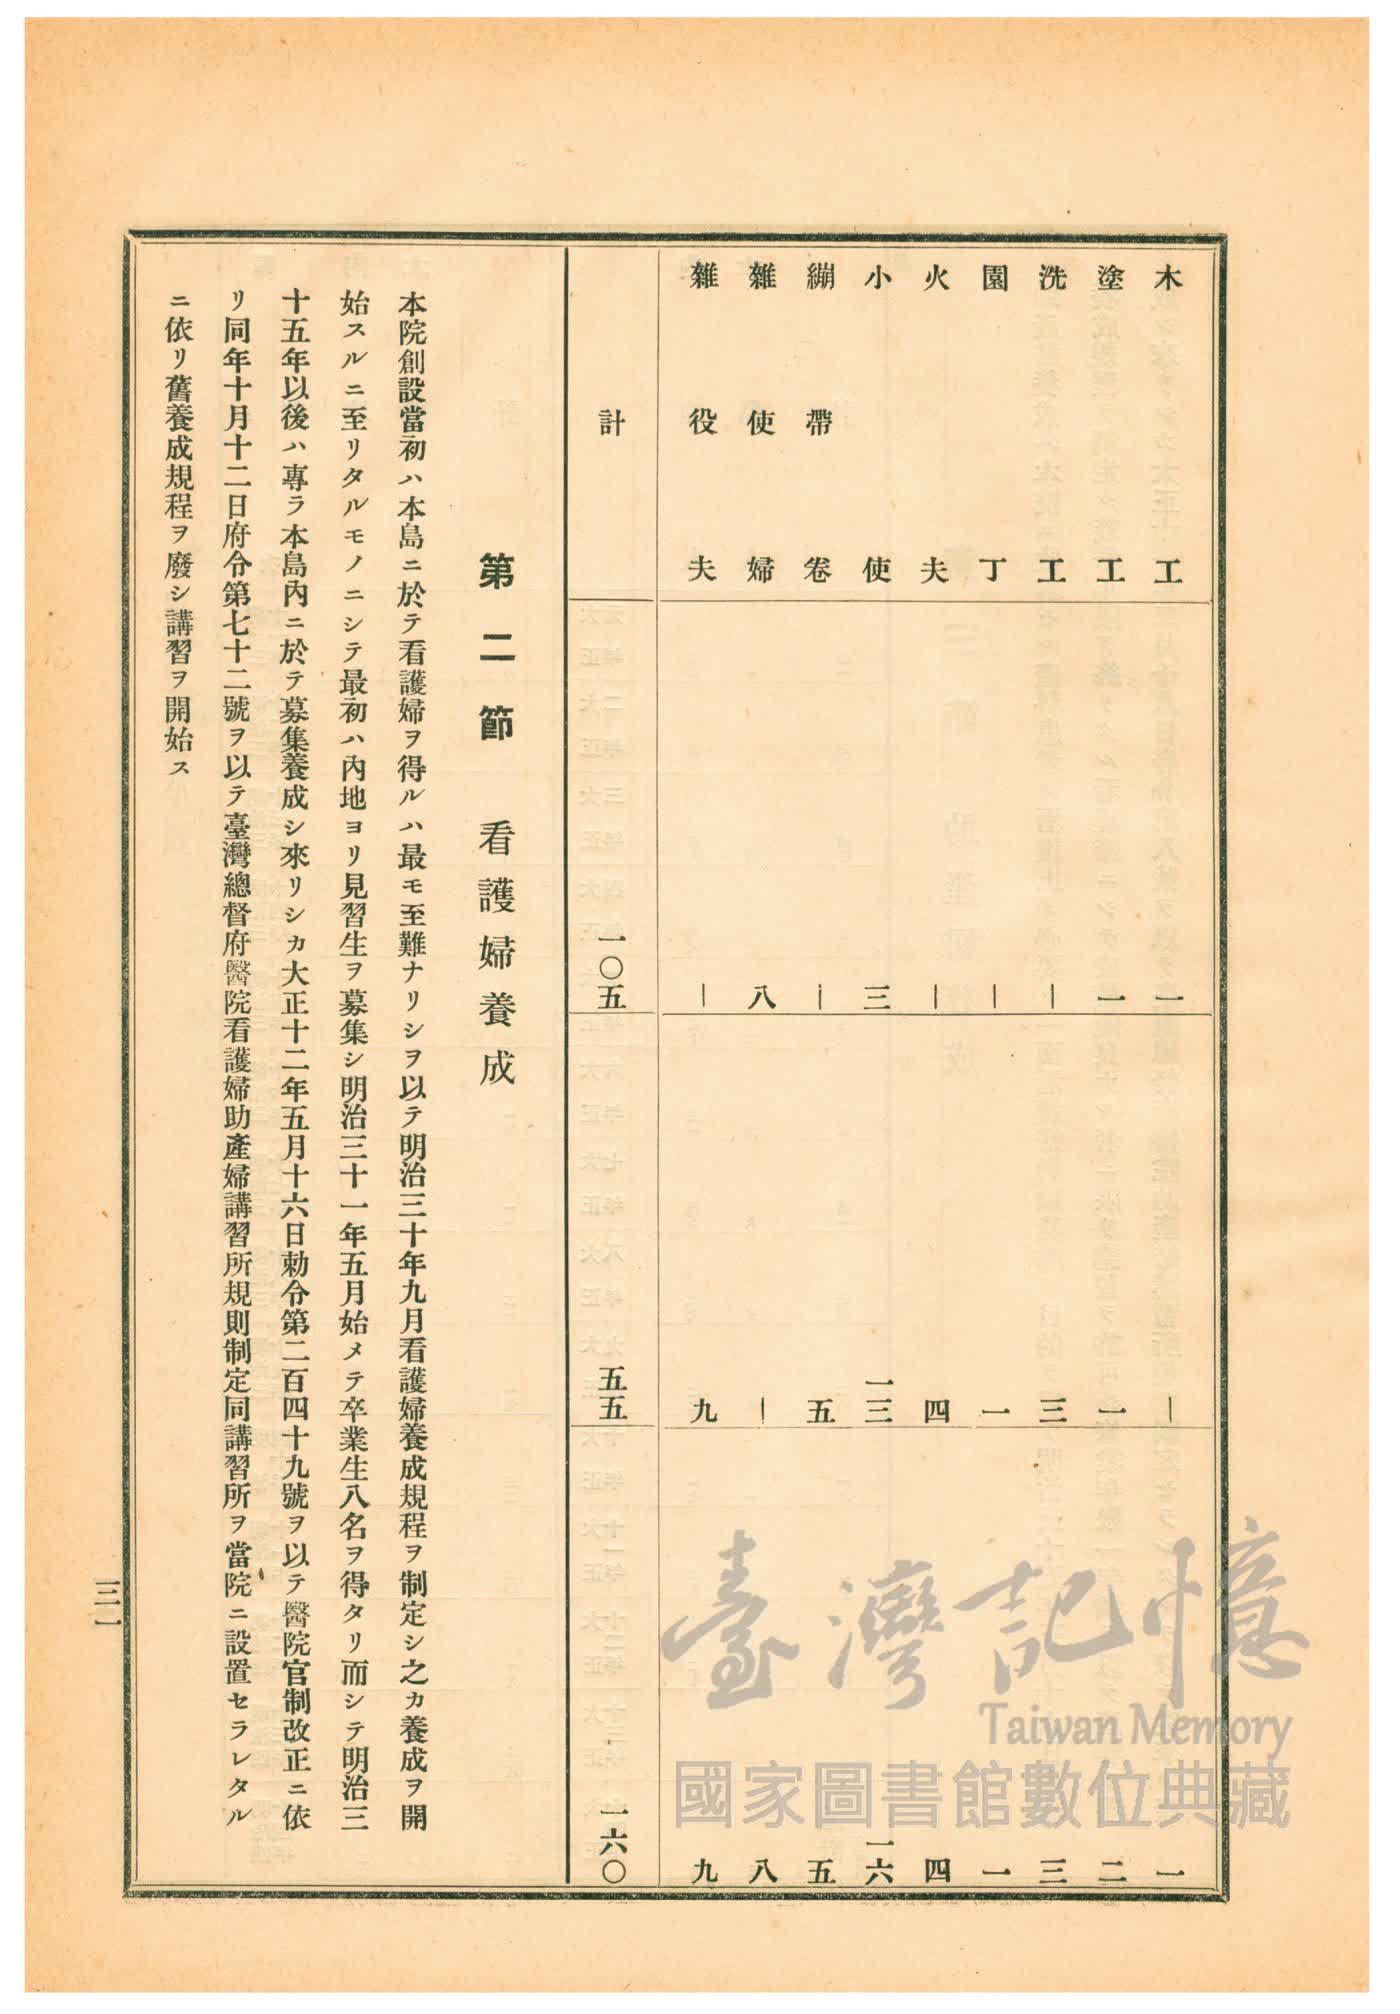 木工 一 ― 一
塗工 一 一 二
洗工 ― 三 三
園丁 ― 一 一
火夫 ― 四 四
小使 三 一三 一六
繃帶卷 ― 五 五
雜使婦 八 ― 八
雜役夫 ― 九 九
計 一〇五 五五 一六〇
第二節 看護婦養成
本院創設當初ハ本島ニ於テ看護婦ヲ得ルハ最モ至難ナリシヲ以テ明治三十年九月看護婦養成規程ヲ制定シ之カ養成ヲ開
始スルニ至リタルモノニシテ最初ハ內地ヨリ見習生ヲ募集シ明治三十一年五月始メテ卒業生八名ヲ得タリ而シテ明治三
十五年以後ハ專ラ本島內ニ於テ募集養成シ來リシカ大正十二年五月十六日勅令第二百四十九號ヲ以テ醫院官制改正ニ依
リ同年十月十二日府令第七十二號ヲ以テ臺灣總督府醫院看護婦助產婦講習所規則制定同講習所ヲ當院ニ設置セラレタル
ニ依リ舊養成規程ヲ廢シ講習ヲ開始ス
三一
臺灣記憶
Taiwan Memory
國家圖書館數位典藏